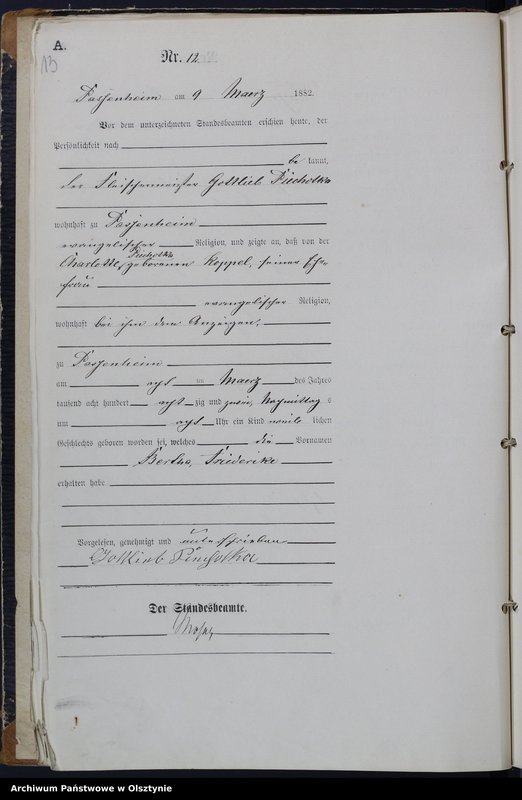 A.
13
Nr. 12
Passenheim am 9 Maerz 1882.
Vor dem unterzeichneten Standesbeamten erschien heute, der
Persönlichkeit nach
be kannt,
der Fleischermeister Gottlieb
wohnhaft zu Passenheim
evangelischer Religion, und zeigte an, daß von der
Charlotte, geborenen Koppel, seiner Ehe-
frau
evangelischer Religion,
wohnhaft bei ihm dem Anzeigen,
zu Passenheim
am acht im Maerz des Jahres
tausend acht hundert acht zig und zwei, Nachmittag s
um acht Uhr ein Kind weib lichen
Geschlechts geboren worden sei, welches die Vornamen
Bertha, Friederike
erhalten habe
Vorgelesen, genehmigt und unterschrieben
Gottlieb
Der Standesbeamte.
Archiwum Państwowe w Olsztynie